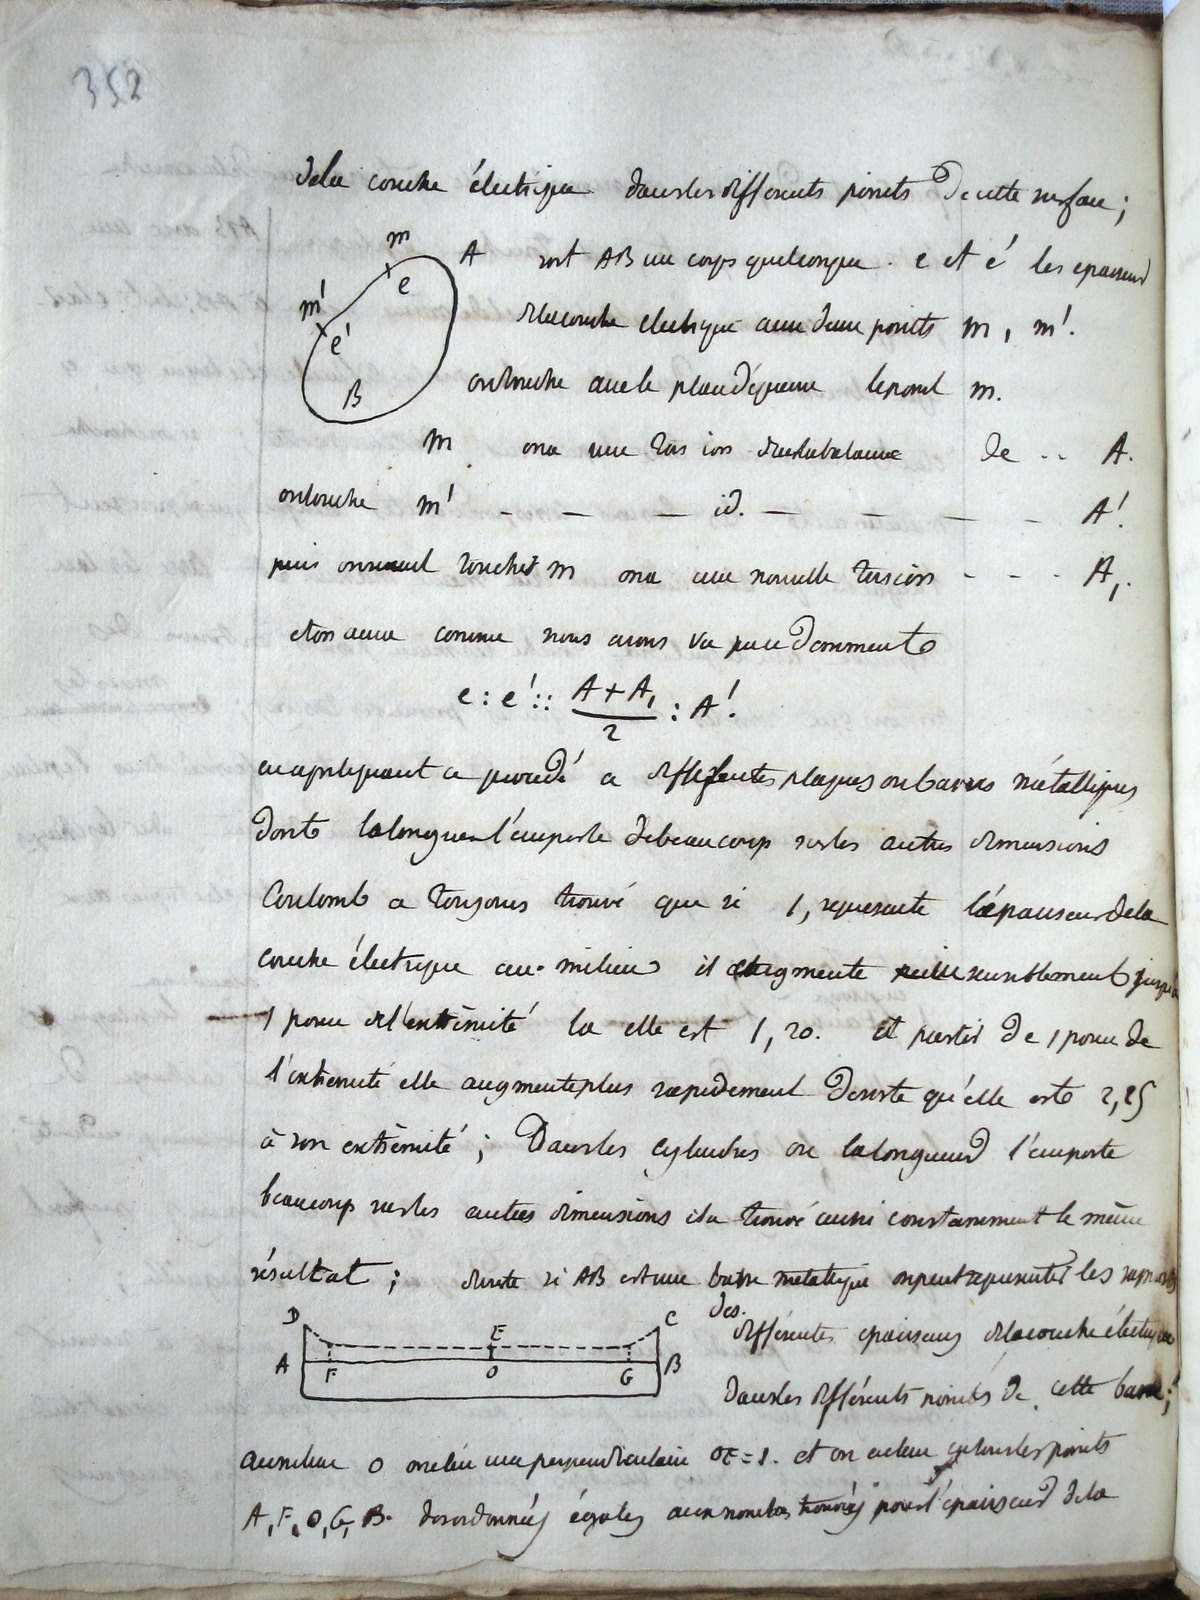 352
de la couche électrique dans les différents points de cette surface ;
m A soit AB un corps quelconque . e et e' les epaisseurs
e
m' de la couche electrique aux deux points m , m'.
e'
B on touche avec le plan d'épreuve le point m.
m on a une torsion dans la balance de .. A.
on touche m' — — — id. — — — — A'.
puis revenant toucher m on a une nouvelle torsion - - - A₁.
et on aura comme nous avons vu precedemment
e : e' :: (A + A₁)/2 : A'.
en appliquant ce procédé a differentes plaques ou barres métalliques
dont la longueur l'emporte de beaucoup sur les autres dimensions
Coulomb a toujours trouvé que si 1, represente l'épaisseur de la
couche électrique au milieu il augmente insensiblement jusqu'à
1 pouce de l'extrêmité la elle est 1, 20. et partir de 1 pouce de
l'extremité elle augmente plus rapidement desorte qu'elle est 2,25
à son extrêmité ; Dans les cylindres ou la longueur l'emporte
beaucoup sur les autres dimensions il a trouvé aussi constamment le même
résultat ; desorte si AB est une barre metallique on peut representer les rapports
des
D E C différentes epaisseurs de la couche électrique
A F O G B dans les différents points de cette barre ;
au milieu O on élève une perpendiculaire OE = 1. et on élève sur tous les points
A, F, O, G, B. des ordonnées égales aux nombres trouvés pour l'épaisseur de la